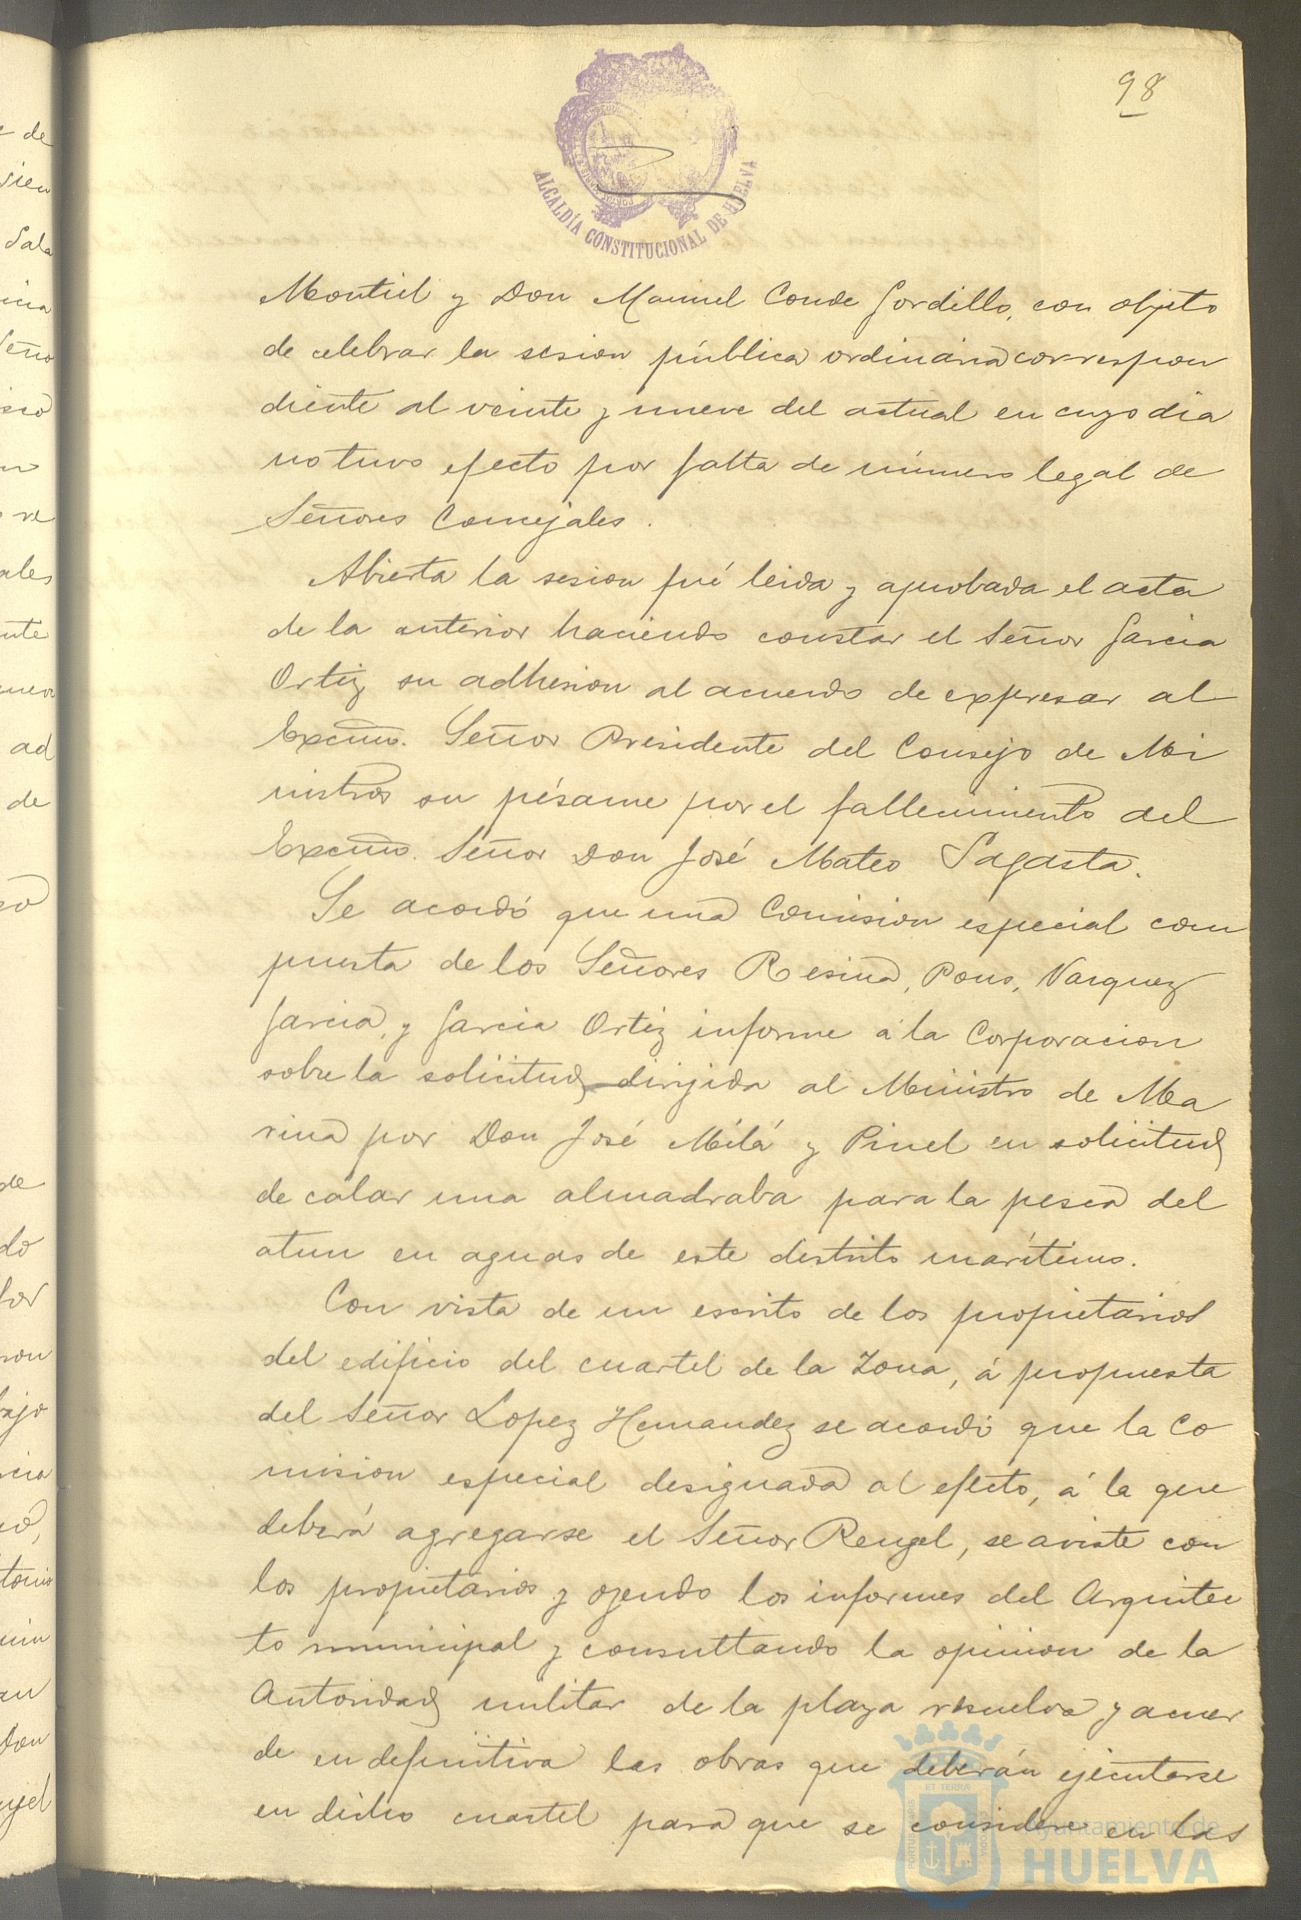 98
ALCALDÍA CONSTITUCIONAL DE HUELVA
Montiel y Don Manuel Conde Gordillo, con objeto
de celebrar la sesion pública ordinaria correspon
diente al veinte y nueve del actual en cuyo dia
no tuvo efecto por falta de número legal de
Señores Concejales.
Abierta la sesion fué leida y aprobada el acta
de la anterior haciendo constar el Señor Garcia
Ortiz su adhesion al acuerdo de expresar al
Excmo. Señor Presidente del Consejo de Mi
nistros su pésame por el fallecimiento del
Excmo. Señor Don José Mateo Sagasta.
Se acordó que una Comision especial com
puesta de los Señores Resina, Pons, Vazquez
Garcia, y Garcia Ortiz informe á la Corporacion
sobre la solicitud dirijida al Ministro de Ma
rina por Don José Milá y Pinel en solicitud
de calar una almadraba para la pesca del
atun en aguas de este distrito marítimo.
Con vista de un escrito de los propietarios
del edificio del cuartel de la Zona, á propuesta
del Señor Lopez Hernandez se acordó que la Co
mision especial designada al efecto, á la que
deberá agregarse el Señor Rengel, se aviste con
los propietarios y oyendo los informes del Arquitec
to municipal y consultando la opinion de la
Autoridad militar de la plaza resuelva y acuer
de en definitiva las obras que deberán ejecutarse
en dicho cuartel para que se considere en las
ET TERRA
Ayuntamiento de
HUELVA